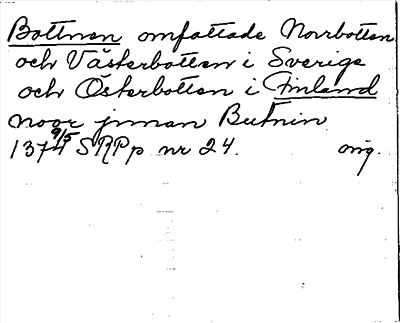 Bottnen omfattade Norrbotten
och Västerbotten i Sverige
och Österbotten i Finland
noor jnnan Butnin
1374 9/5 SRPp nr 24. orig.